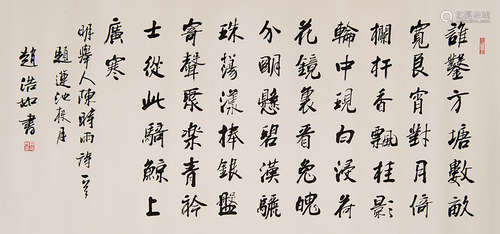 誰鑿方塘數畝
寬良宵對月倚
闌杆香飄桂影
輪中現白浸荷
花鏡裏看兔魄
分明懸碧漢驪
珠蕩漾捧銀盤
寄聲眾樂青衿
士從此騎鯨上
廣寒
明舉人陳時雨詩一首
題蓮池夜月
趙浩如書